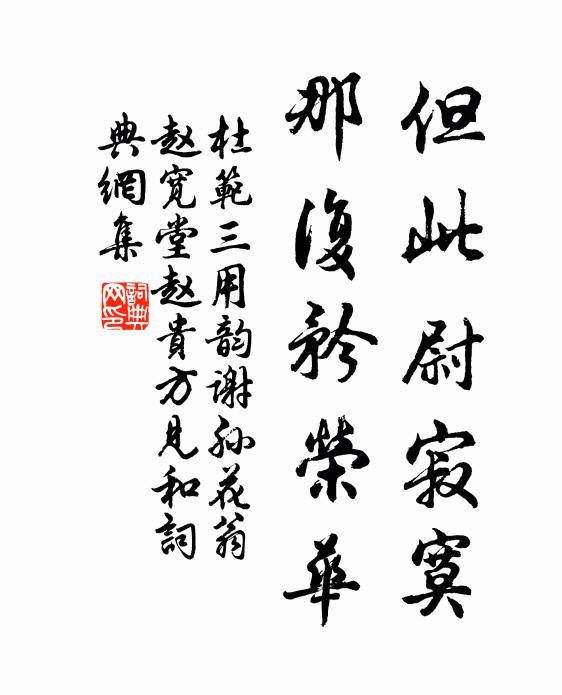 但此尉寂寞
那復矜榮華
杜範三用韵謝孙花翁
赵寛堂赵貴方見和詞
典網集
詞典网印